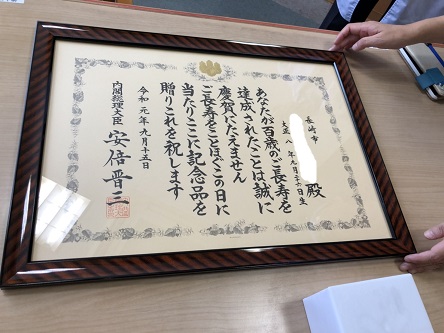 長崎市
大正八年九月二十六日生
殿
あなたが百歳のご長寿を
達成されたことは誠に
慶賀にたえません
ご長寿をことほぐこの日に
当たりここに記念品を
贈りこれを祝します
令和元年九月十五日
内閣総理大臣 安倍晋三